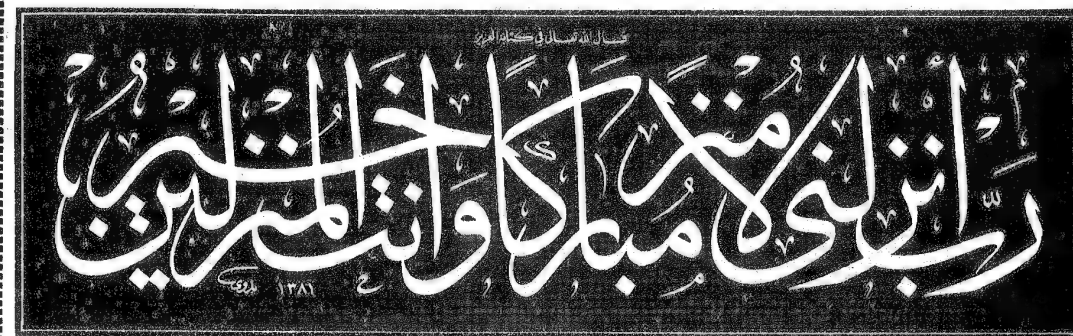 قال الله تعالى في كتابه العزيز
رَبِّ أَنْزِلْنِي مُنْزَلًا مُبَارَكًا وَأَنْتَ خَيْرُ الْمُنْزِلِينَ
١٣٨١